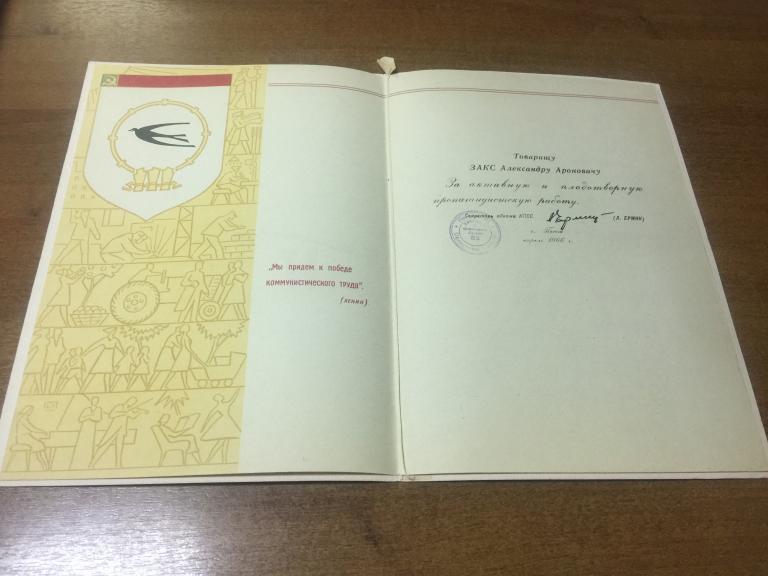 „Мы придем к победе
коммунистического труда".
(ленин)
Товарищу
ЗАКС Александру Ароновичу
За активную и плодотворную
пропагандистскую работу.
Секретарь обкома КПСС
(Л. ЕРМИН)
г. Пенза
апрель 1966 г.